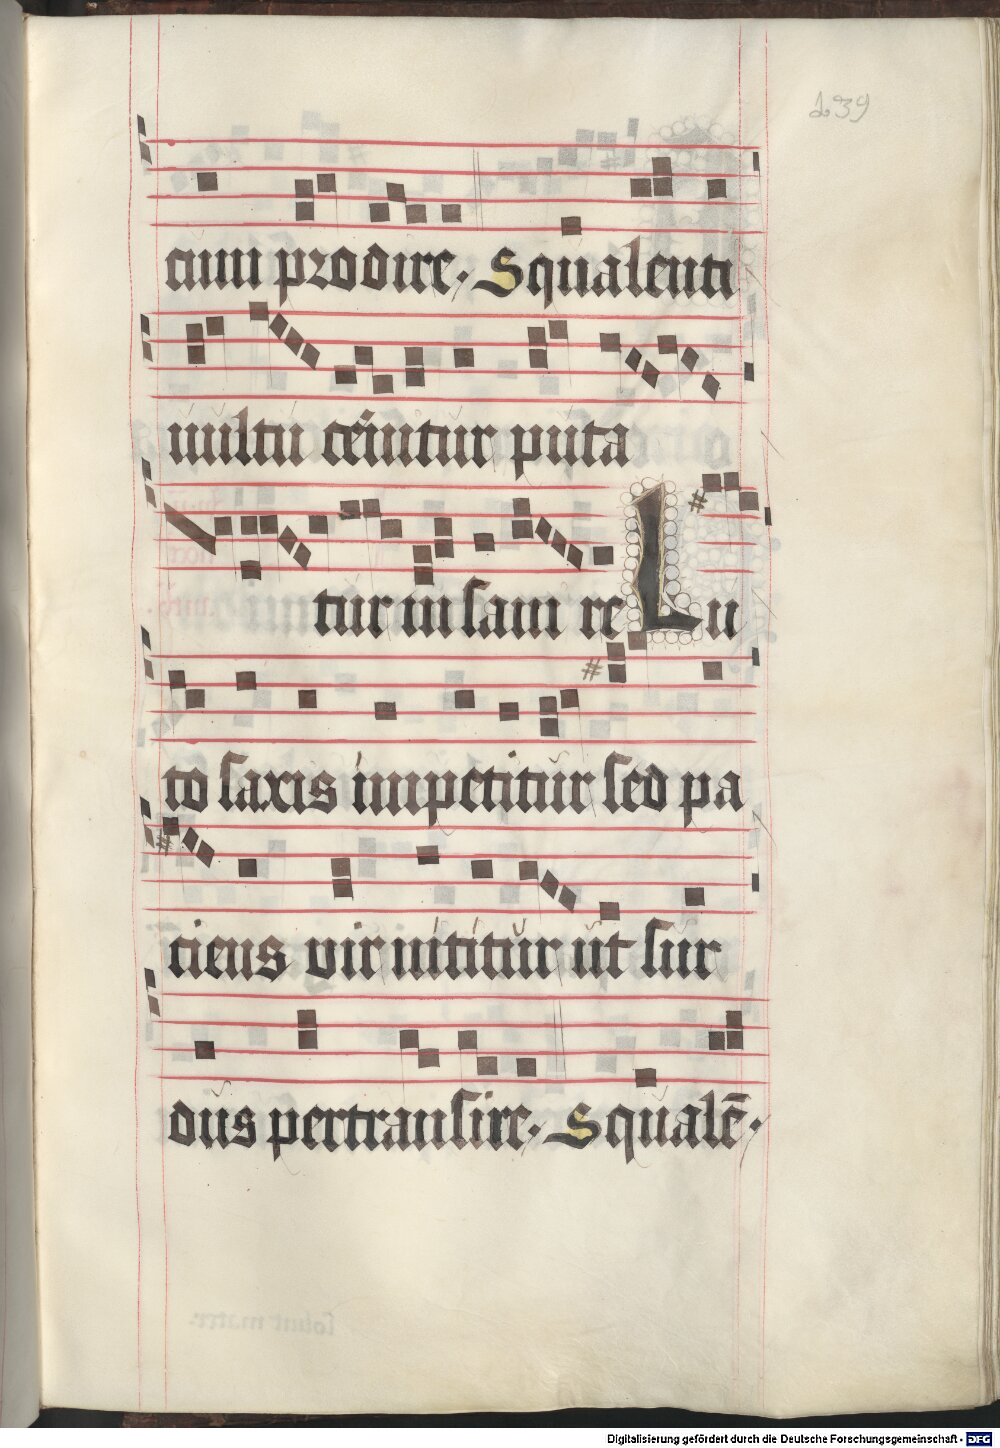 239
cum prodire. Squalenti
uultu cernitur puta
tur insani re Lu
to saxis impetitur sed pa
tiens vir nititur ut sur
dus pertransire. Squalē.
Digitalisierung gefördert durch die Deutsche Forschungsgemeinschaft - DFG